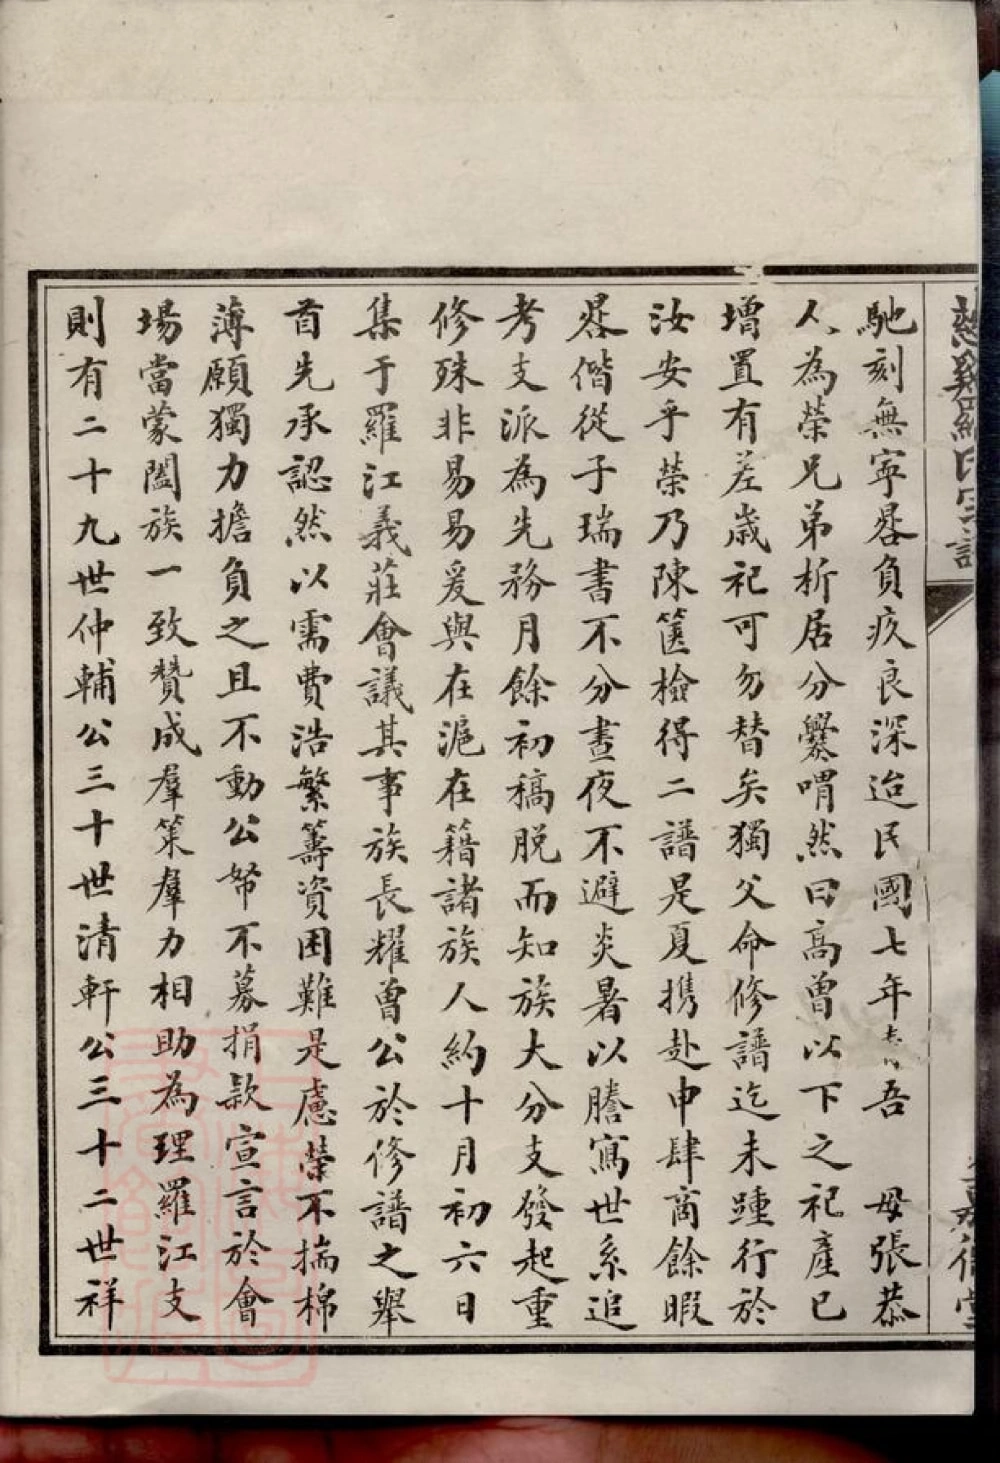 慈谿羅氏宗譜
馳刻無寧晷負疚良深迨民國七年春吾 母張恭
人為榮兄弟析居分爨喟然曰高曾以下之祀產已
增置有差歲祀可勿替矣獨父命修譜迄未踵行於
汝安乎榮乃陳篋檢得二譜是夏携赴申肆商餘暇
晷偕從子瑞書不分晝夜不避炎暑以謄寫世系追
考支派為先務月餘初稿脫而知族大分支發起重
修殊非易易爰與在滬在籍諸族人約十月初六日
集于羅江義莊會議其事族長耀曾公於修譜之舉
首先承認然以需費浩繁籌資困難是慮榮不揣棉
薄願獨力擔負之且不動公帑不募捐款宣言於會
場當蒙闔族一致贊成羣策羣力相助為理羅江支
則有二十九世仲輔公三十世清軒公三十二世祥